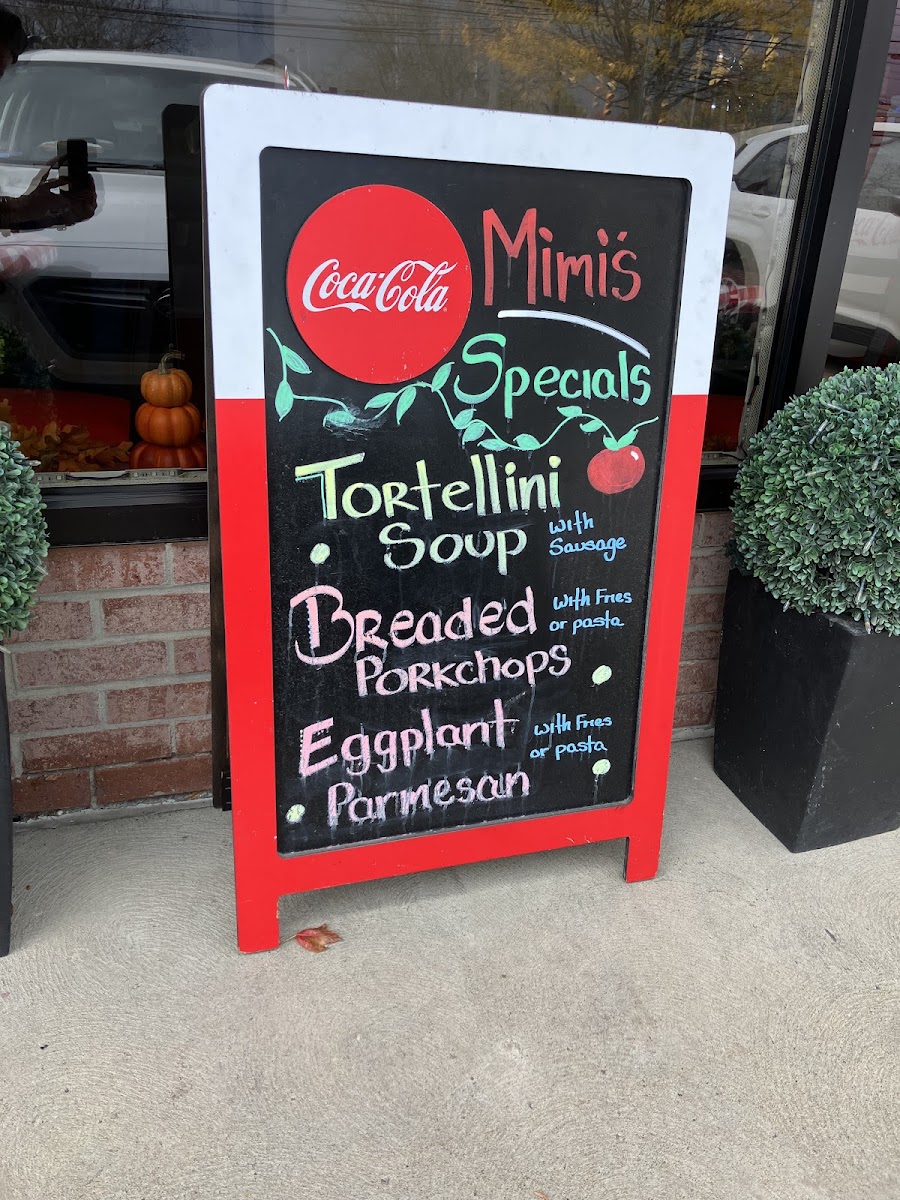 Coca-Cola
Mimi's
Specials
Tortellini
Soup
with
Sausage
Breaded
Porkchops
with Fries
or pasta
Eggplant
Parmesan
with Fries
or pasta
Coca-Cola